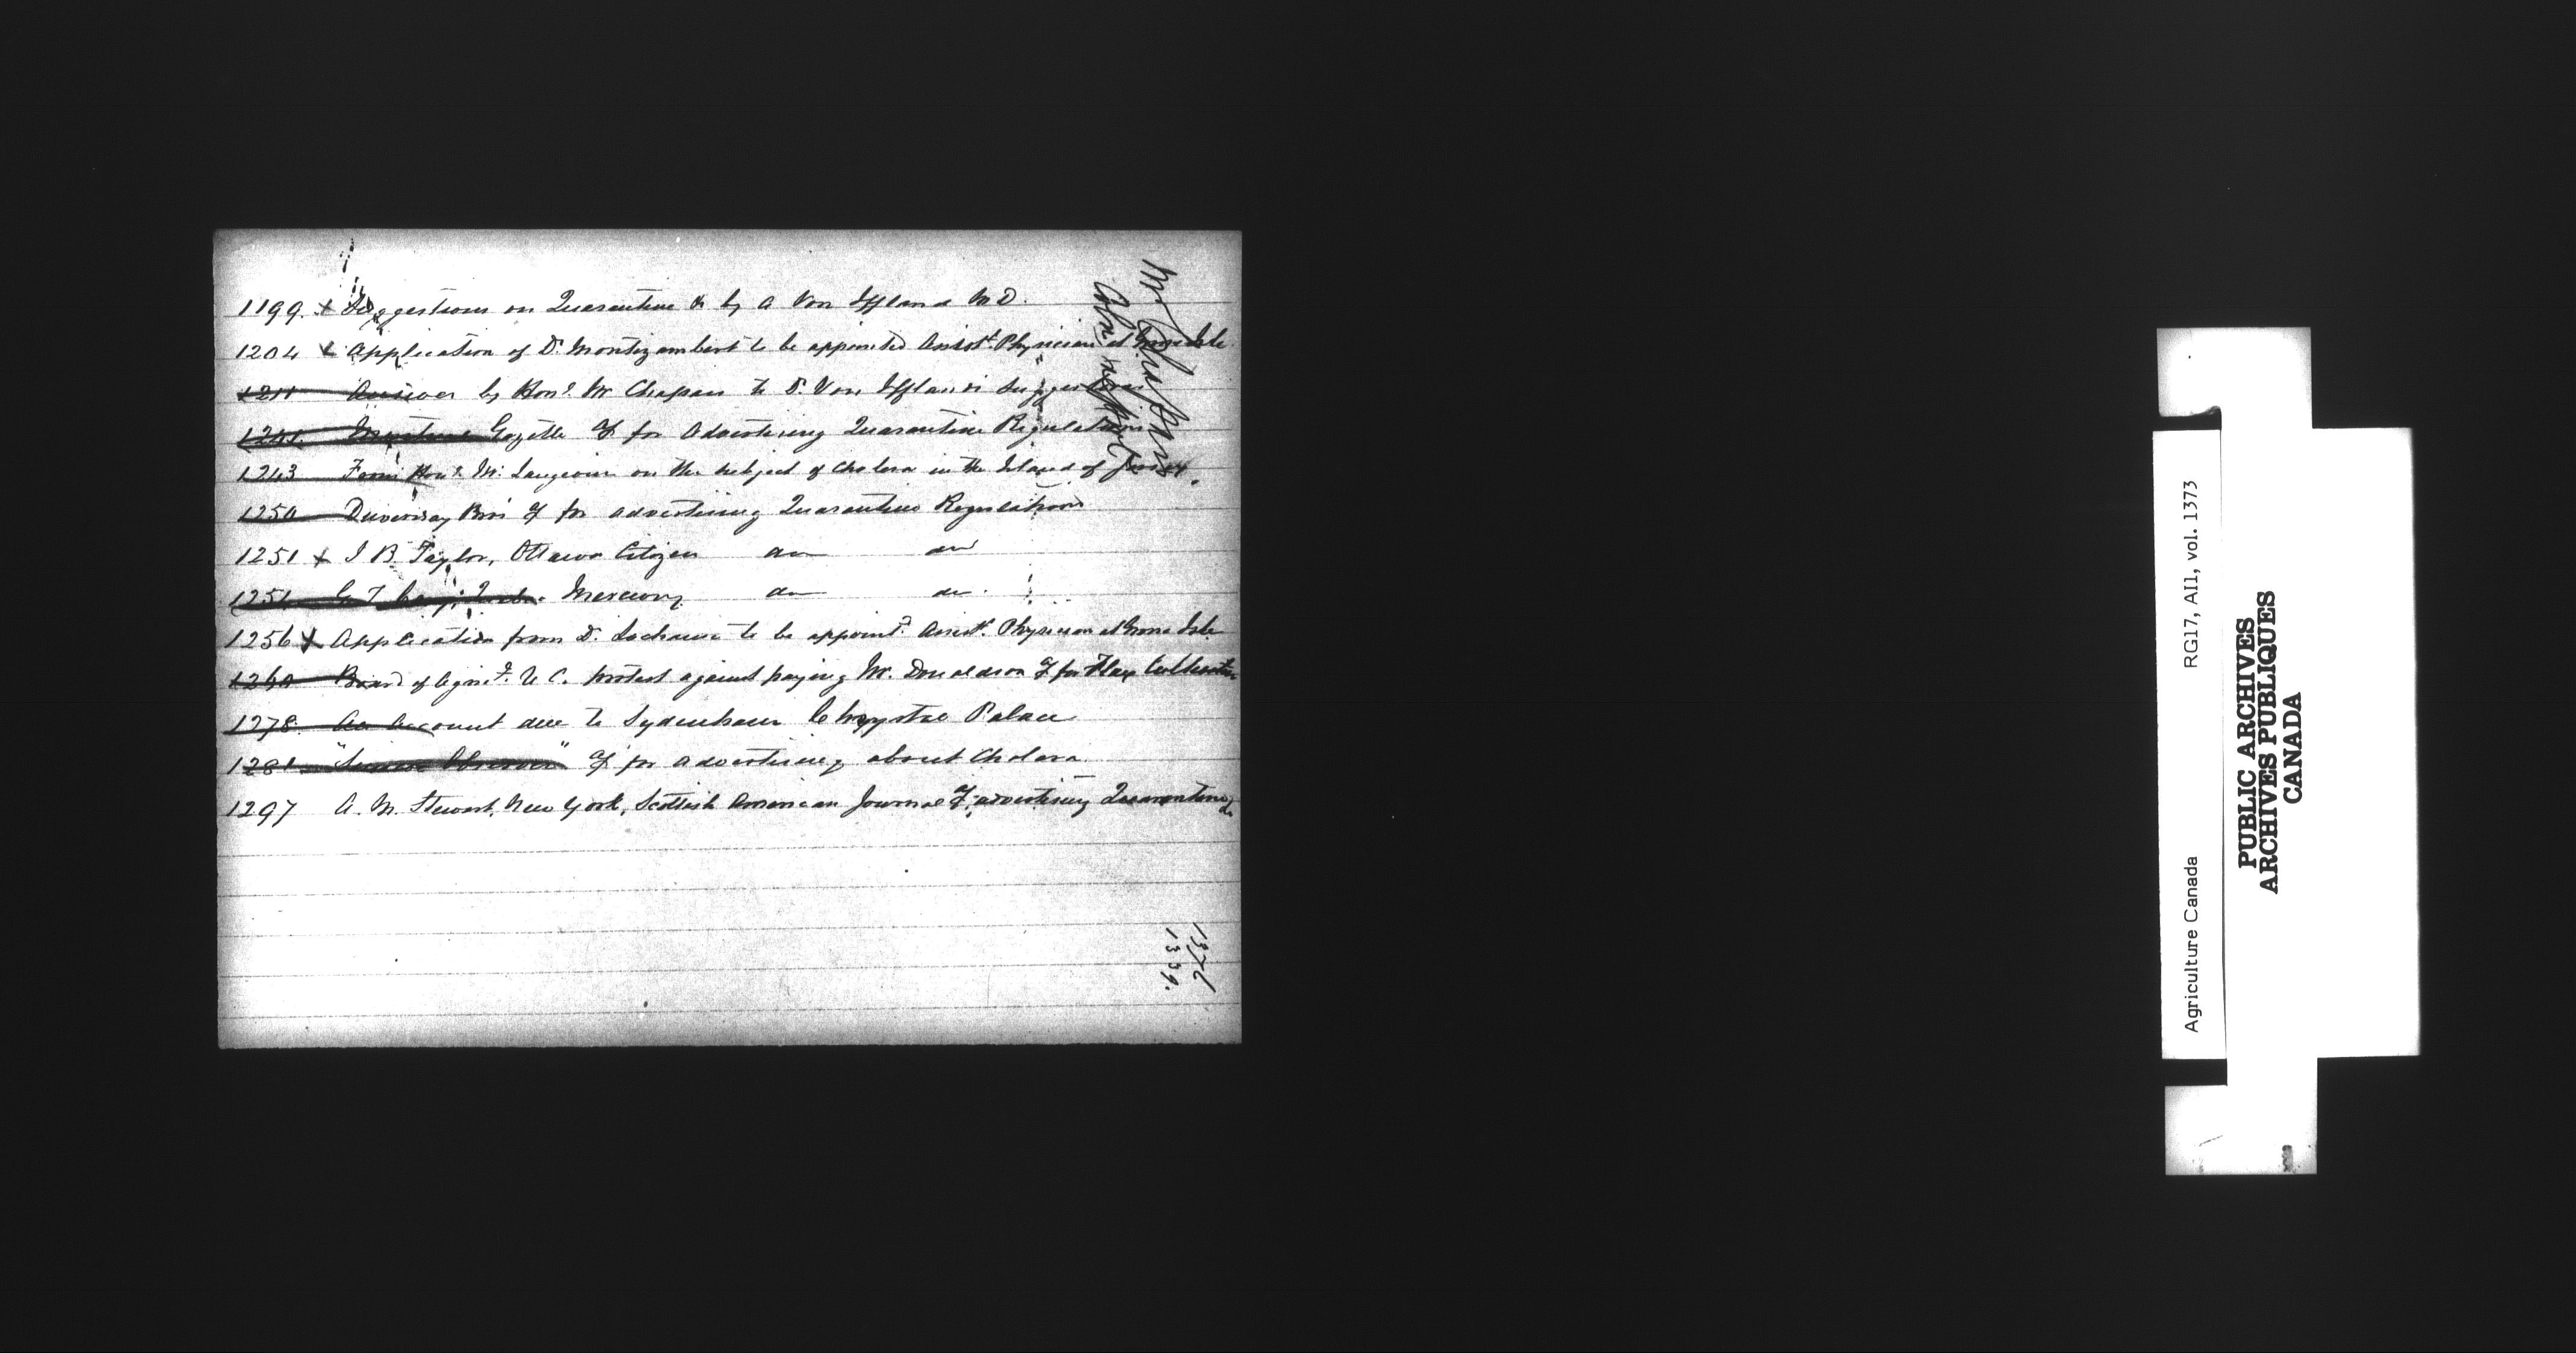 1199. x Suggestions on Quarantine & by A Von Iffland M.D.
1204 x Application of Dr. Montizambert to be appointed Assist. Physician at Grosse Isle
1211 Answer by Honl. Mr Chapais to Dr. Von Iffland's Suggestions
Gazette % for Advertising Quarantine Regulations
1243 From Honl. Mr. Langevin on the subject of cholera in the Island of
1250 Duvernay Bros % for advertising Quarantine Regulations
1251 x I B. Taylor, Ottawa Citizen do do
G T Cary Quebec Mercury do do
1256 x Application from Dr. to be appointd. Assist. Physician at Grosse Isle
1260 Board of Agrict. U C. protest against paying Mr. Donaldson % for Flax Cultivation
1278 An Account due to Sydenham Chrystal Palace
Observer" % for advertising about Cholera
1297 A. M. Stewart, New York, Scottish American Journal % advertising Quarantine &c
Mr Chapais
1376
1339.
Agriculture Canada RG17, AII, vol. 1373
PUBLIC ARCHIVES
ARCHIVES PUBLIQUES
CANADA